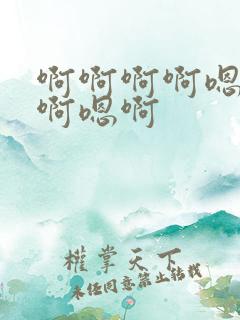 啊啊啊啊嗯
啊嗯啊
權掌天下
未经同意禁止转载